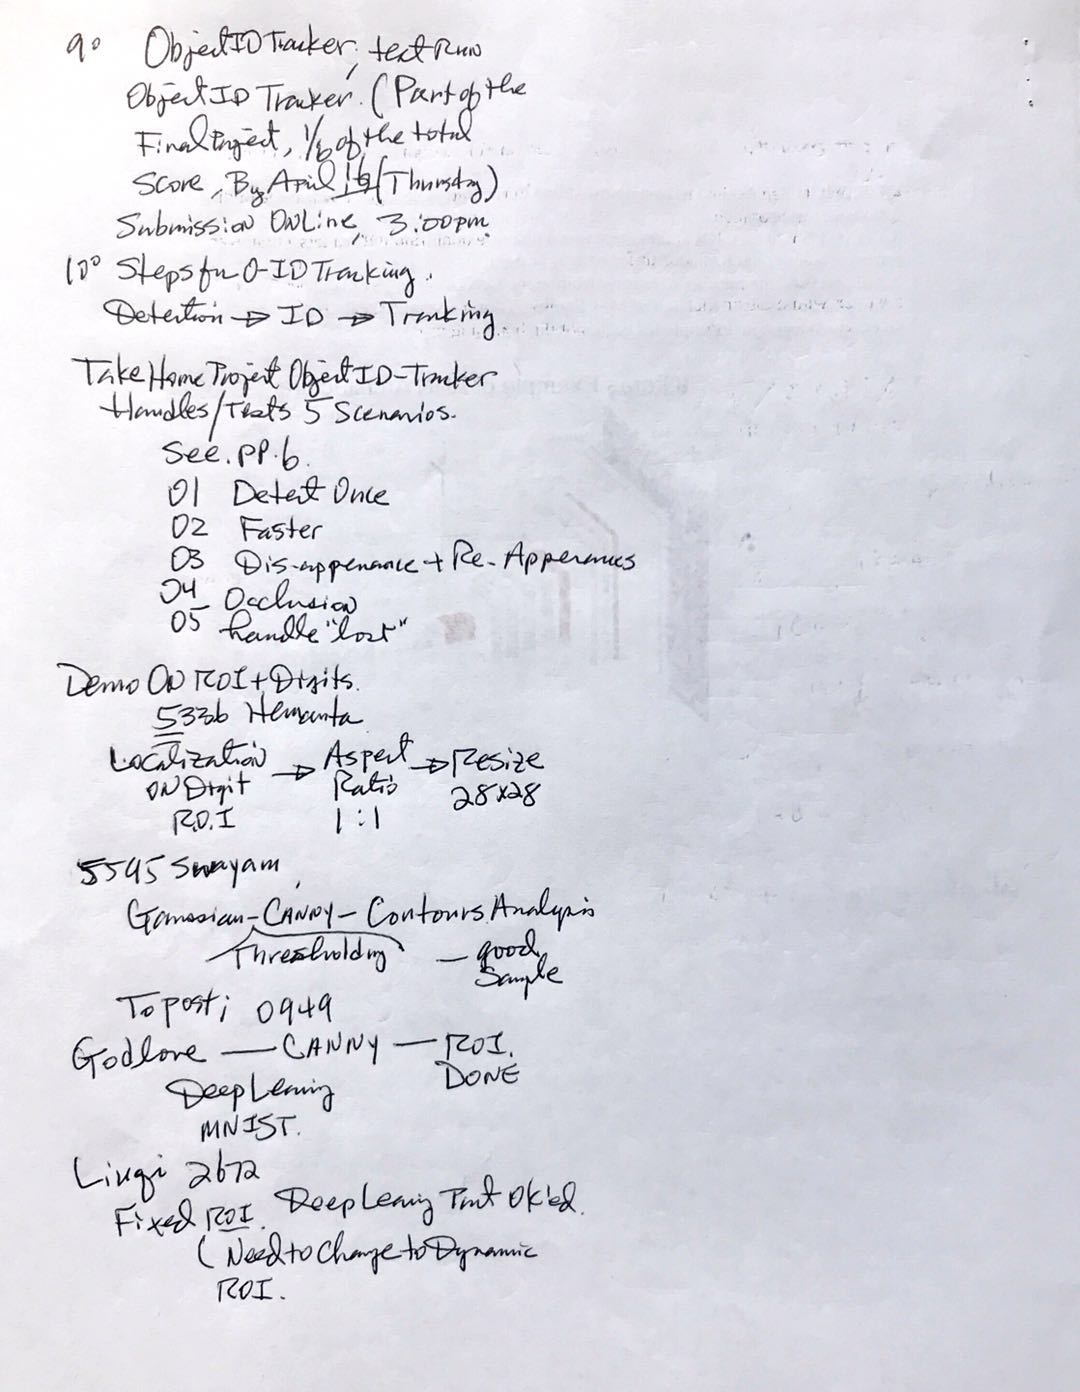 9° Object ID Tracker, test Run
Object ID Tracker. (Part of the
Final Project, 1/6 of the total
Score, By April 16 (Thursday)
Submission ONLine, 3:00pm.
10° Steps for O-ID Tracking.
Detection → ID → Tracking
Take Home Project Object ID-Tracker
Handles/Tests 5 Scenarios.
See. PP.6.
01 Detect Once
02 Faster
03 Dis-appearance + Re-Apperances
04 Occlusion
05 handle "lost"
Demo ON ROI + Digits.
5336 Hemanta
Localization → Aspect → Resize
ON Digit Ratio 28x28
R.O.I 1:1
5595 Swayam
Gaussian-CANNY-Contours Analysis
Thresholding — good
Sample
To post; 0949
Godlove — CANNY — ROI.
DONE
Deep Learning
MNIST.
Linqi 2672
Fixed ROI. Deep Learning Part OK'ed.
(Need to Change to Dynamic
ROI.